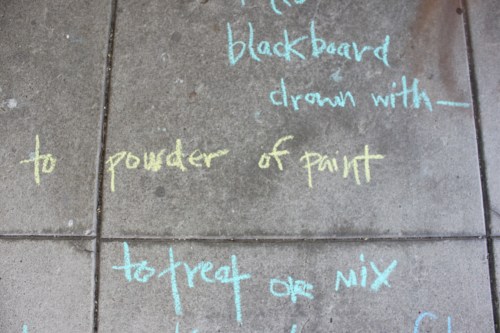 blackboard
drawn with—
to powder of paint
to treat OR MIX